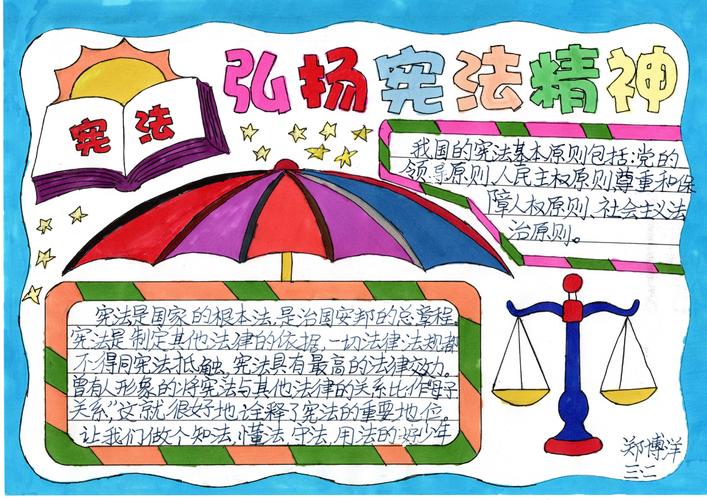 弘扬宪法精神
宪法
我国的宪法基本原则包括:党的
领导原则、人民主权原则、尊重和保
障人权原则、社会主义法
治原则。
宪法是国家的根本法,是治国安邦的总章程,
宪法是制定其他法律的依据,一切法律法规都
不得同宪法抵触,宪法具有最高的法律效力。
曾有人形象的将宪法与其他法律的关系比作“母子
关系”,这就很好地诠释了宪法的重要地位。
让我们做个知法,懂法,守法,用法的好少年
郑博洋
三.二